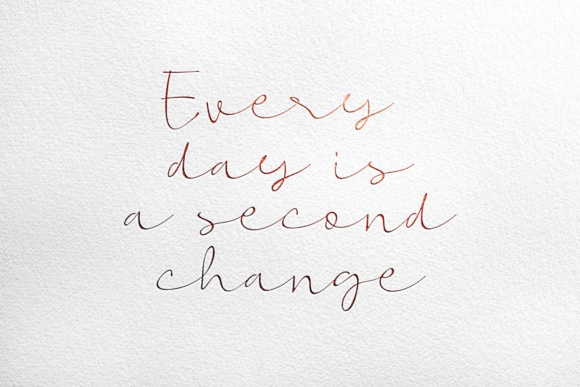 Every
day is
a second
change